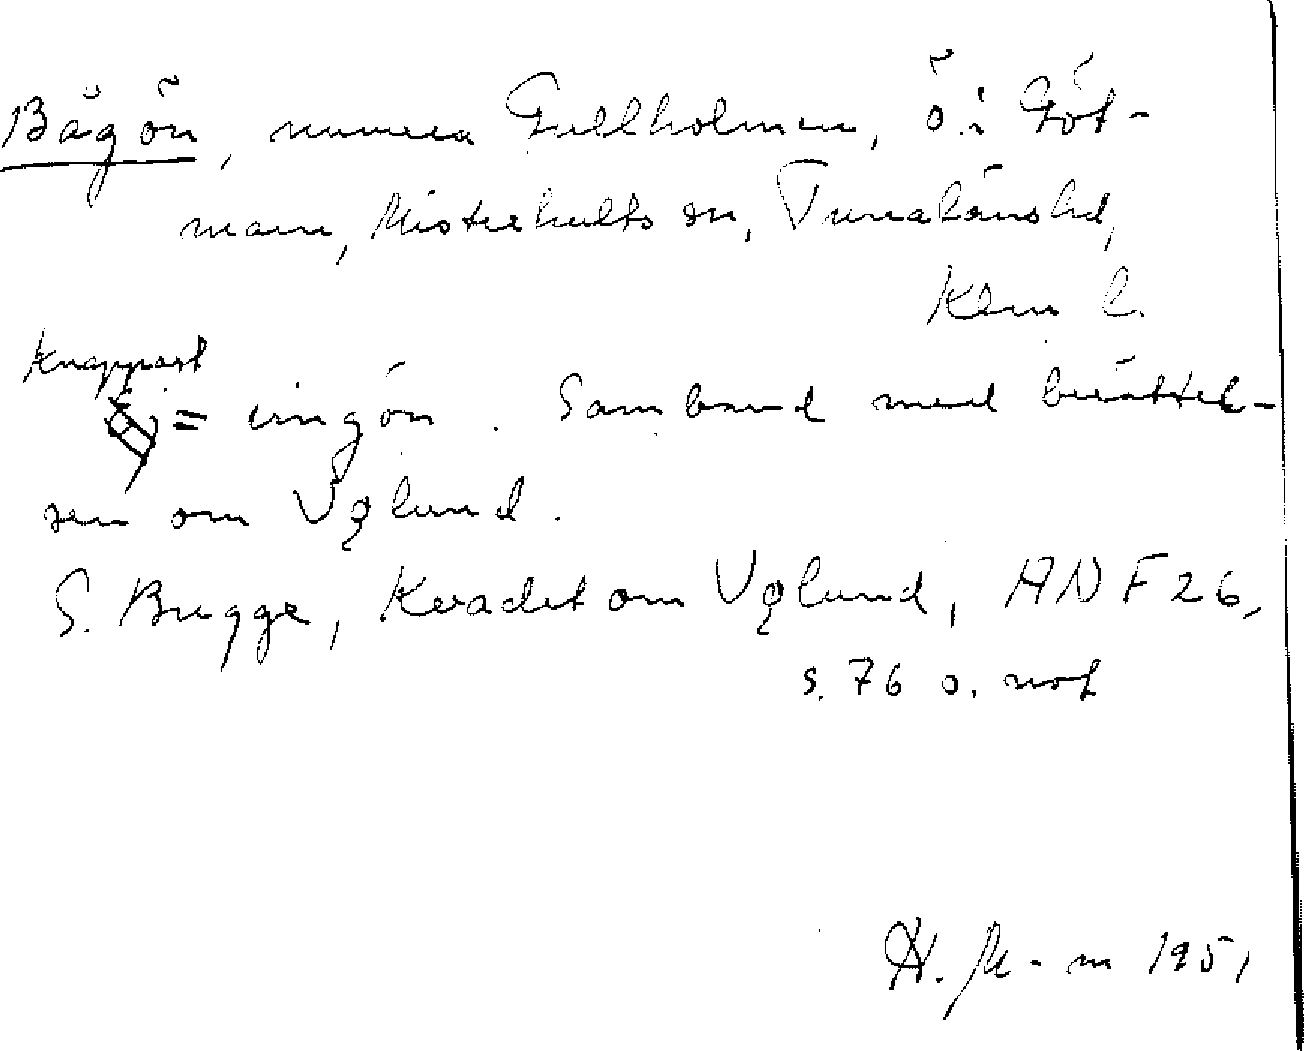 Bågön, numera Gullholmen, ö. i Göt-
mare, Misterhults sn, Tunaläns hd,
Klm l.
Knappast
= ringön. Samband med berättel-
sen om Vǫlund.
S. Bugge, Kvadet om Vǫlund, ANF 26,
s. 76 o. not
H. M-m 1951